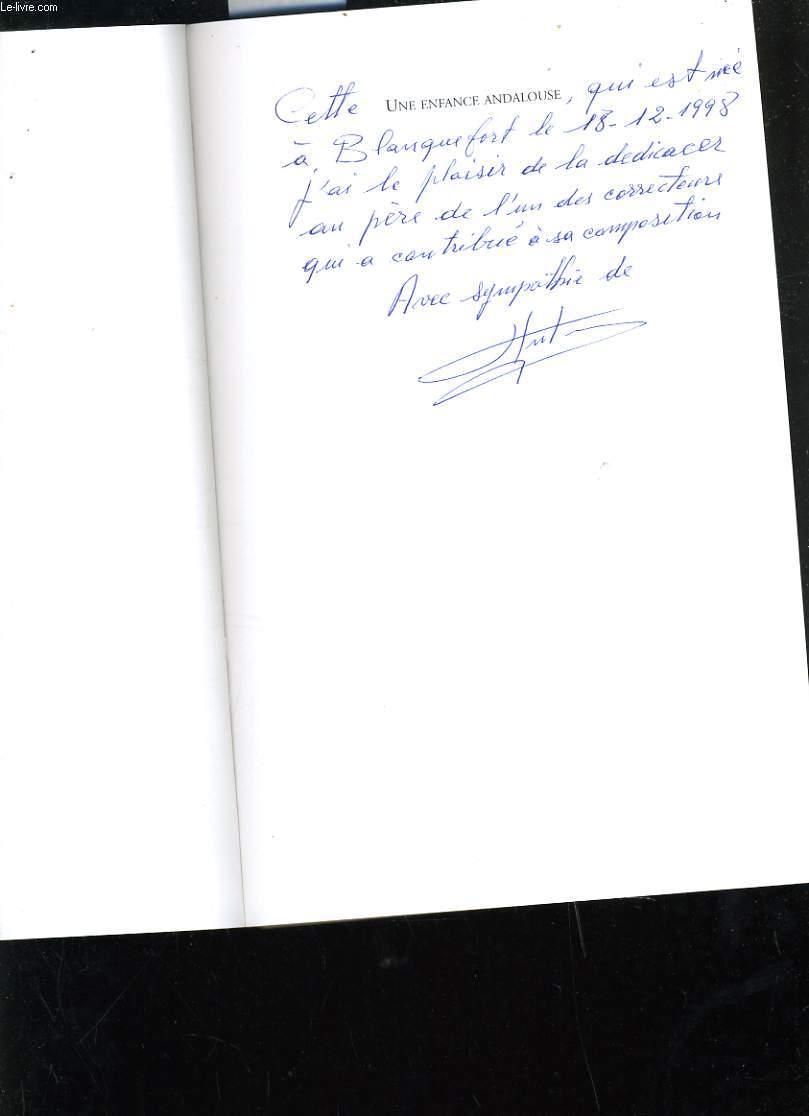 Le-livre.com
Cette UNE ENFANCE ANDALOUSE, qui est née
à Blanquefort le 18-12-1998
J'ai le plaisir de la dedicacer
au père de l'un des correcteurs
qui a contribué à sa composition
Avec sympathie de